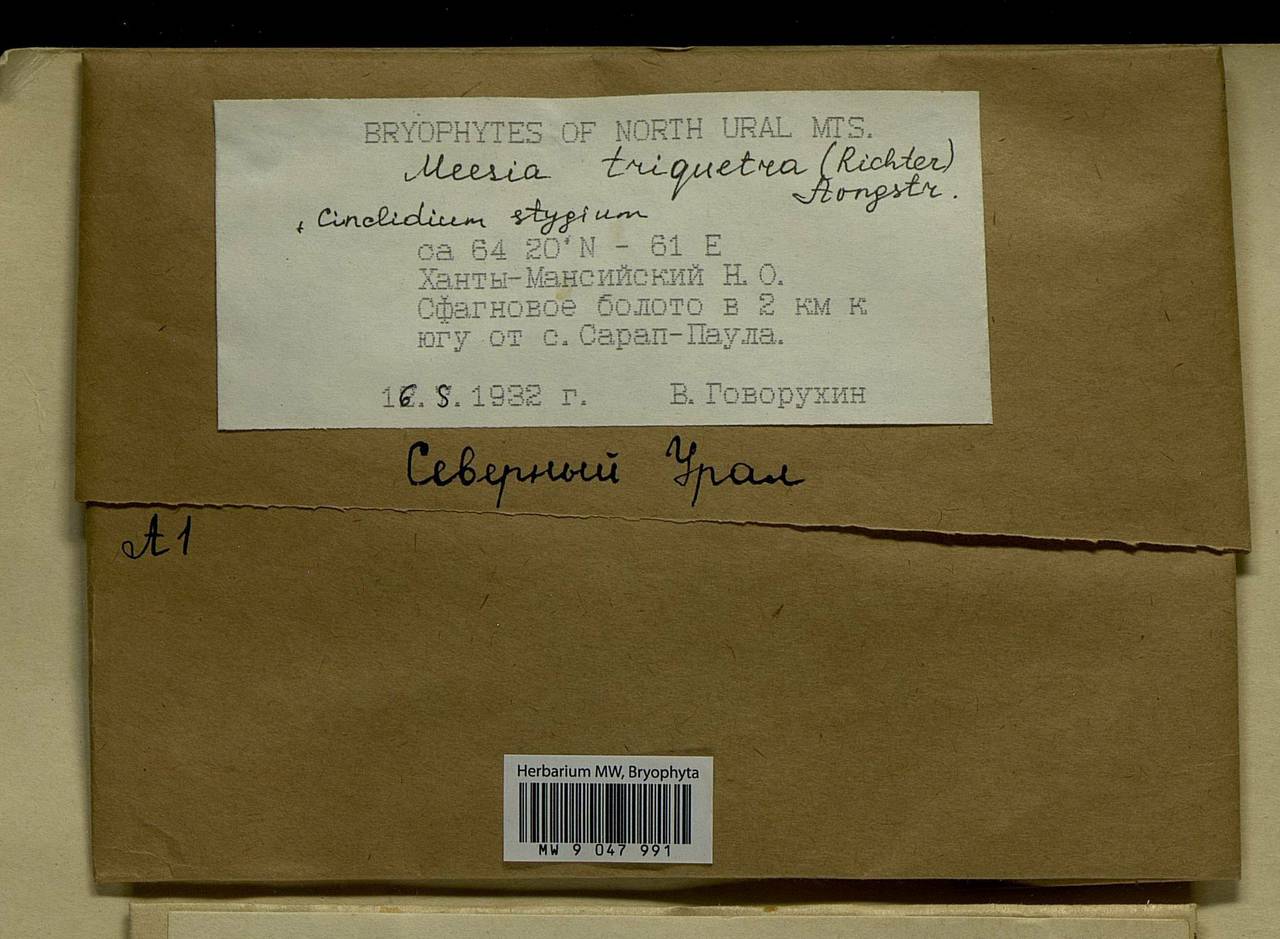 BRYOPHYTES OF NORTH URAL MTS.
Meesia triquetra (Richter)
Aongstr.
+ Cinclidium stygium
ca 64 20' N - 61 E
Ханты-Мансийский Н.О.
Сфагновое болото в 2 км к
югу от с.Сарап-Паула.
16. 8. 1932 г. В.Говорухин
Северный Урал
A1
Herbarium MW, Bryophyta
MW 9 047 991